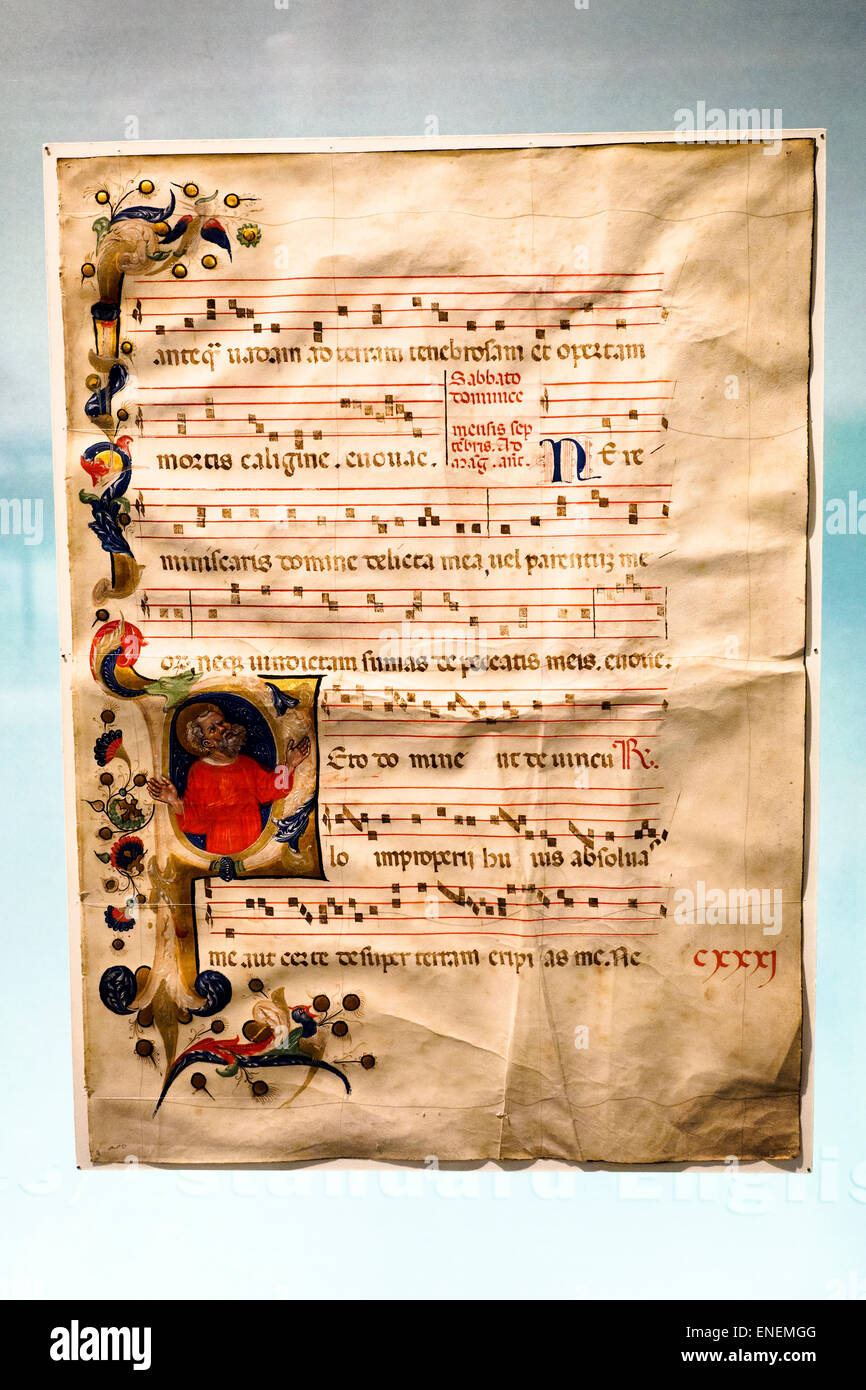 anteq̃ uadam ad terram tenebrosam et opertam
Sabbato
dominice
mensis sep
tēbris. Ad
mag. anť.
mortis caligine. euouae.
NE re
miniscaris domine delicta mea, uel parentuꝝ me
oꝝ, neqꝫ uindictam sumas de peccatis meis. euoue.
Eto do mine ut de uincu R̃.
lo improperii hu ius absolua
me aut certe desuper terram eripi as me. Ne
CXXXI
alamy
Image ID: ENEMGG
www.alamy.com